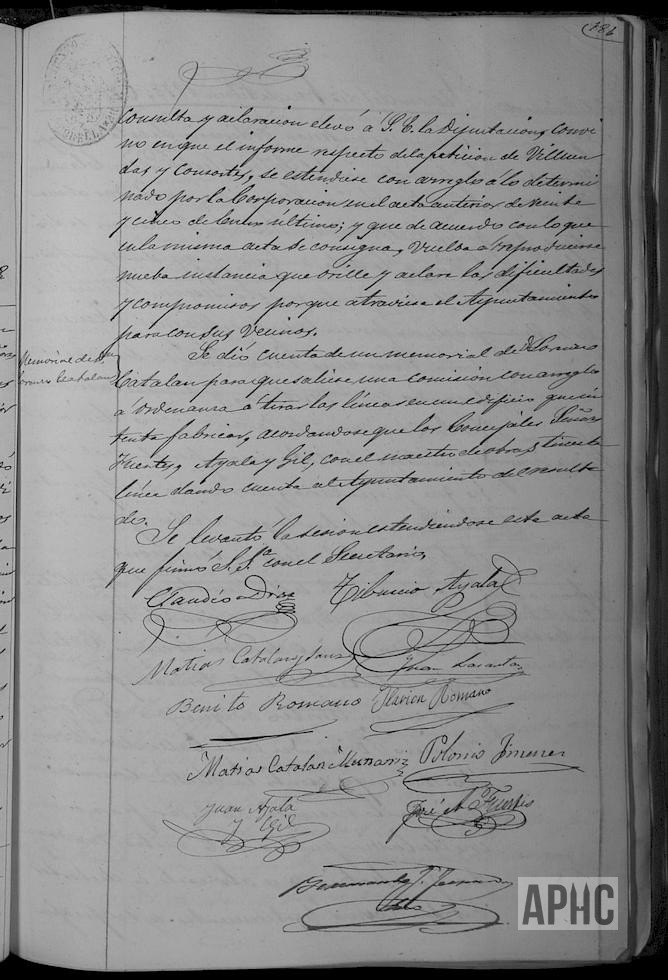 186
consulta y aclaracion elevó á S. E. la Diputacion, convi
no en que el informe respecto de la peticion de Villuen
das y consortes, se estendiese con arreglo á lo determi
nado por la Corporacion en el acta anterior de veinte
y cinco de Enero último; y que de acuerdo con lo que
en la misma acta se consigna, vuelba a reproducirse
nueba instancia que orille y aclare las dificultades
y compromisos porque atraviesa el Ayuntamiento
para con sus vecinos.
Memorial de
Catalan
Se dió cuenta de un memorial de D.
Catalan para que saliese una comision con arreglo
a ordenanza á tirar las líneas en un edificio que in
tenta fabricar, acordandose que los Concejales Señores
Fuentes, Ayala y Gil, con el maestro de obras tiren la
línea dando cuenta al Ayuntamiento del resulta
do.
Se levantó la sesion estendiendose esta acta
que firmó S. Sª con el Secretario,
Claudio Tiburcio Ayala
Matias Catalan y Sanz Juan
Benito Romano Flavian Romano
Matias Catalan Munarriz Polonio Jimenez
Juan Ayala
y Gil
José A. Fuertes
APHC